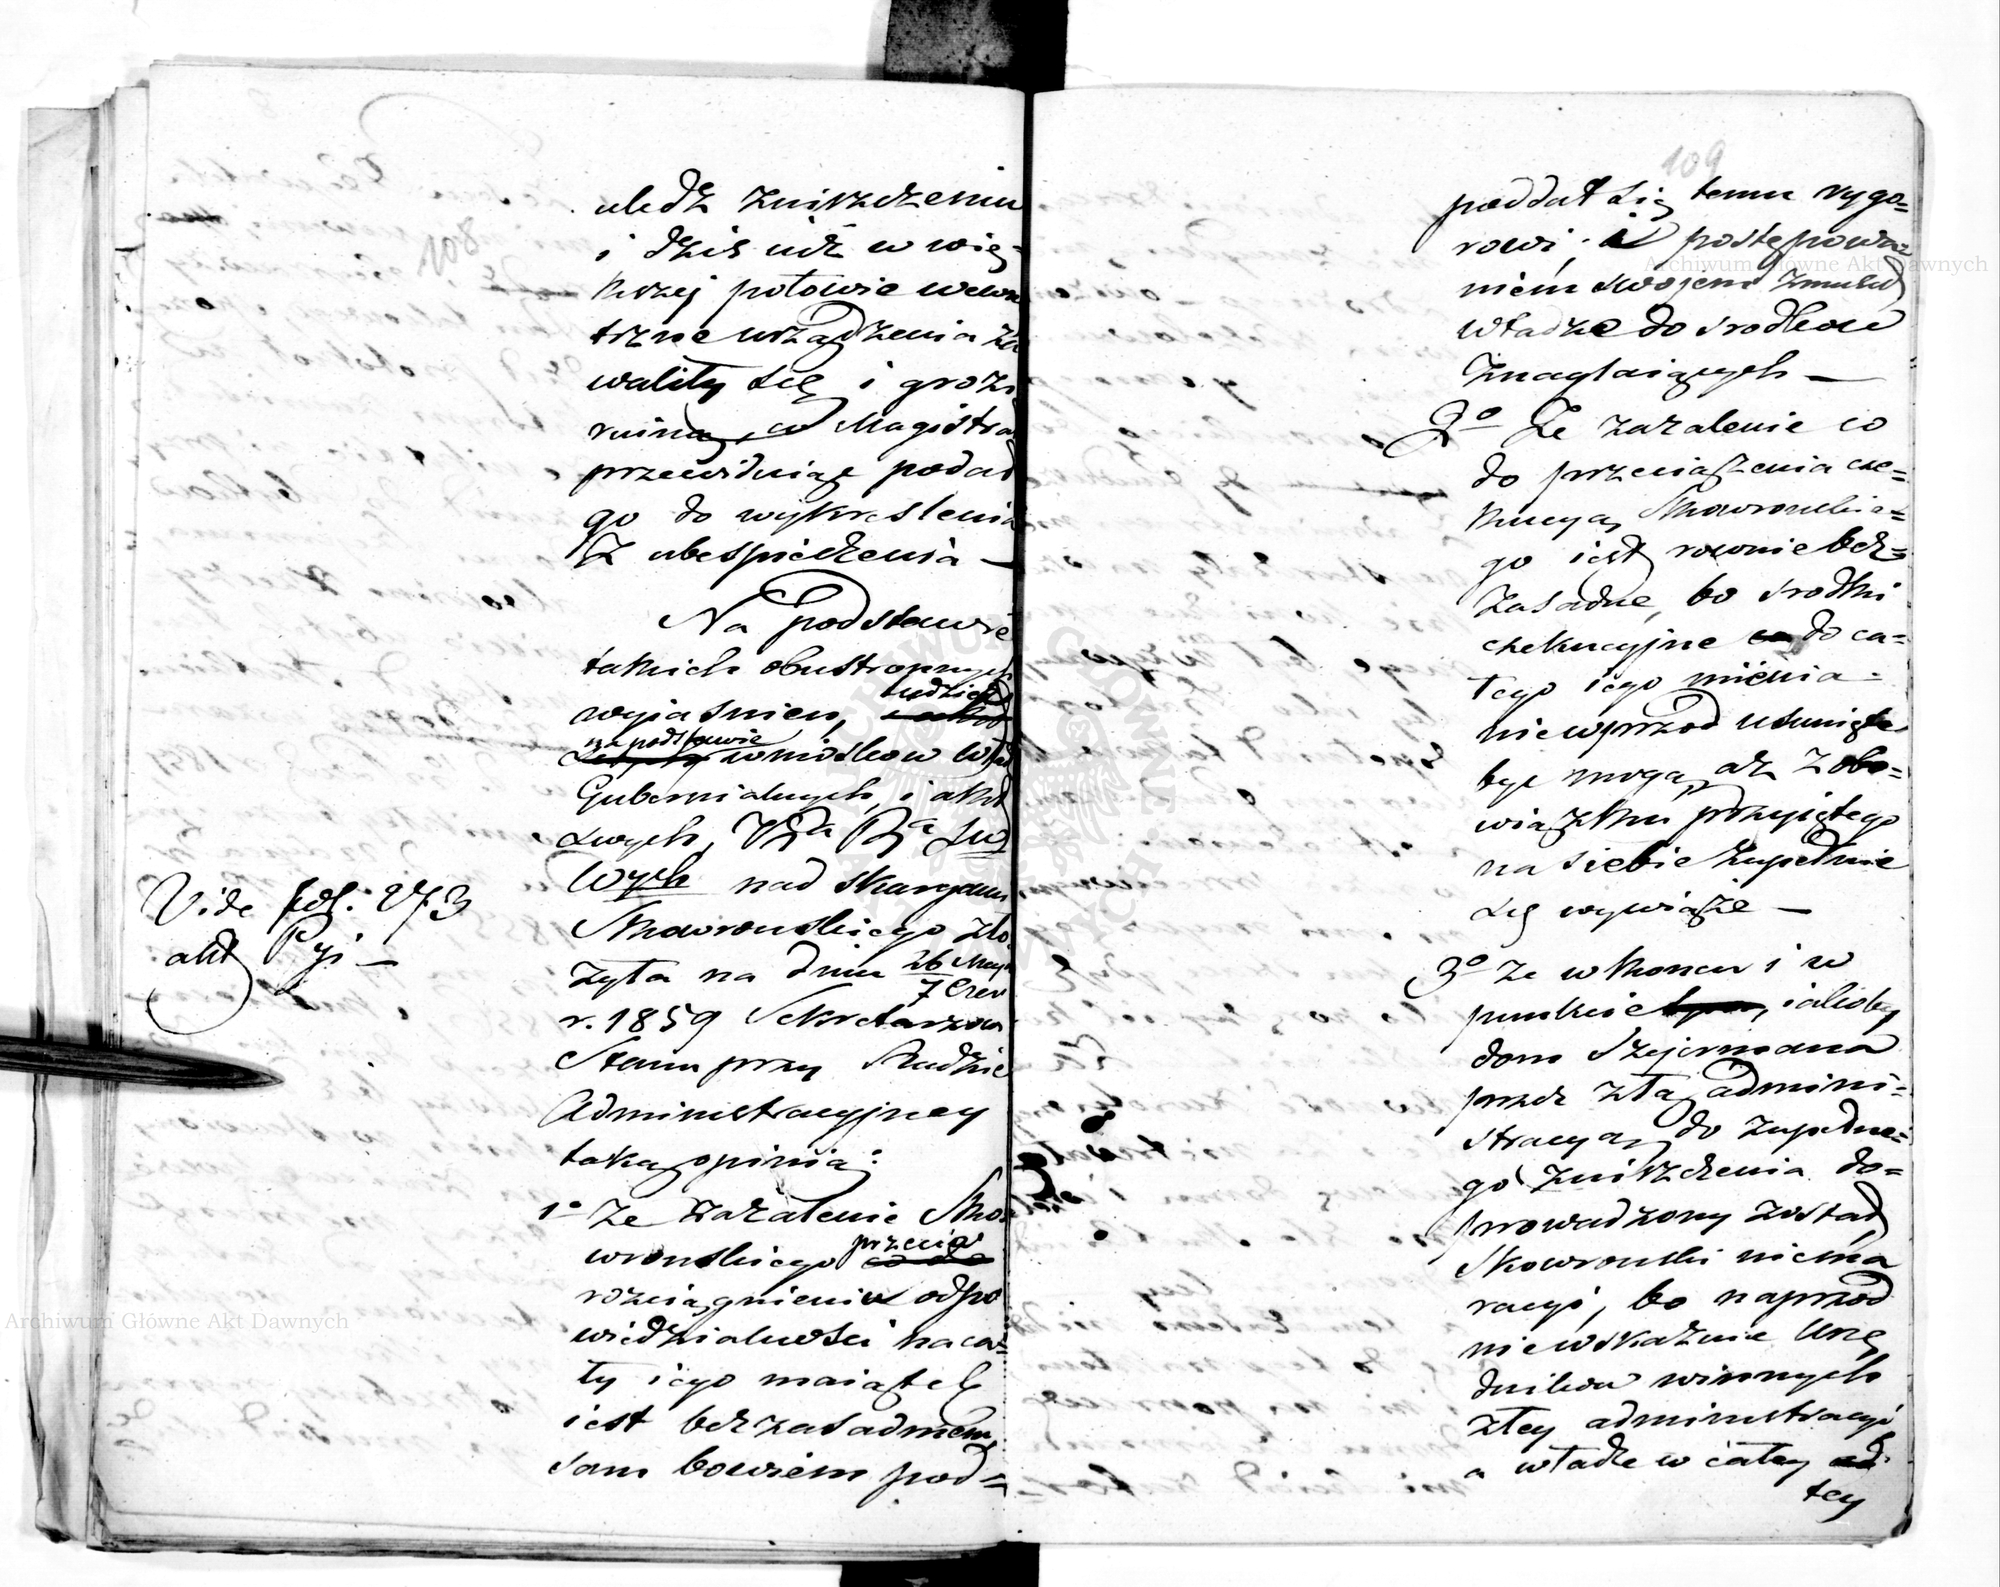 108
uledz zniszczeniu
i dziś iuż w więk=
kszej połowie wewn
trzne urządzenia za
waliły się i grozi
ruiną, co Magistra
przewiduiąc podał
go do wykreslenia
z ubespieczenia —
Na podstawie
takich obustronnych
wyiasnien, udziel
na podstawie
wniosków Wład
Gubernialnych, i akt
Wych nad skargami
Skowronskiego zło
żyła na dniu 26 Maja
7 Czer
r. 1859 Sekretarzowi
Stanu przy Radzie
Administracyjney
taką opinią:
1o Że zażalenie Sko
wronskiego przeciw
rozciągnieniu odpo
wiedzialności na ca=
ły iego maiątek
iest bezzasadném,
sam bowiem pod=
Vide fol: 273
akt Pyi —
109
poddał się temu rygo=
rowi, i postępowa=
niém swojem zmusił
władze do srodków
znaglaiących —
2o Że zażalenie co
do przeciążenia exe=
kucyą Skowronskie=
go iest rownie bez=
zasadne, bo srodki
exekucyjne do ca=
łego iego mienia
nie wprzod usunięte
być mogą, aż z obo=
wiązku przyiętego
na siebie zupełnie
się wywiąże —
3o że w koncu i w
punkcie iakoby
dom Szejermana
przez złą admini=
stracyą do zupełne=
go zniszczenia do=
prowadzony został
Skowronski niema
racyi, bo naprzod
niewskazuie Urzę
dników winnych
złey administracyi
a władze w całey
tey
Archiwum Główne Akt Dawnych
Archiwum Główne Akt Dawnych